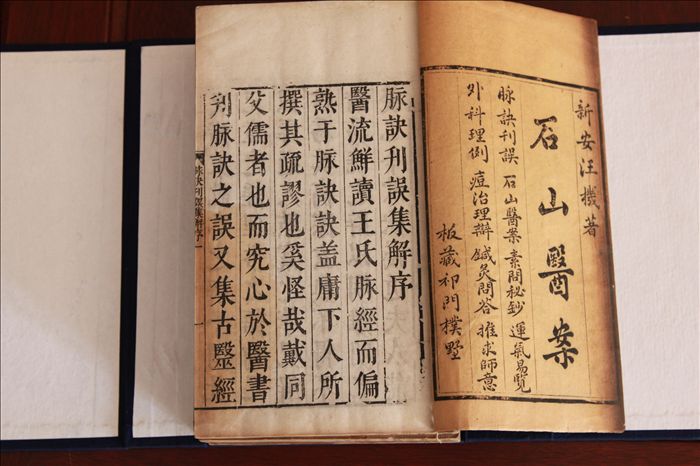 新安汪機著
石山醫案
脉訣刊誤 石山醫案 素問秘鈔 運氣易覽
外科理例 痘治理辯 鍼灸問答 推求師意
板藏祁門樸墅
脉訣刊誤集解序
醫流鮮讀王氏脉經而偏
熟于脉訣訣盖庸下人所
撰其疏謬也奚怪哉戴同
父儒者也而究心於醫書
刋脉訣之誤又集古醫經
脉訣刊誤集解序 一